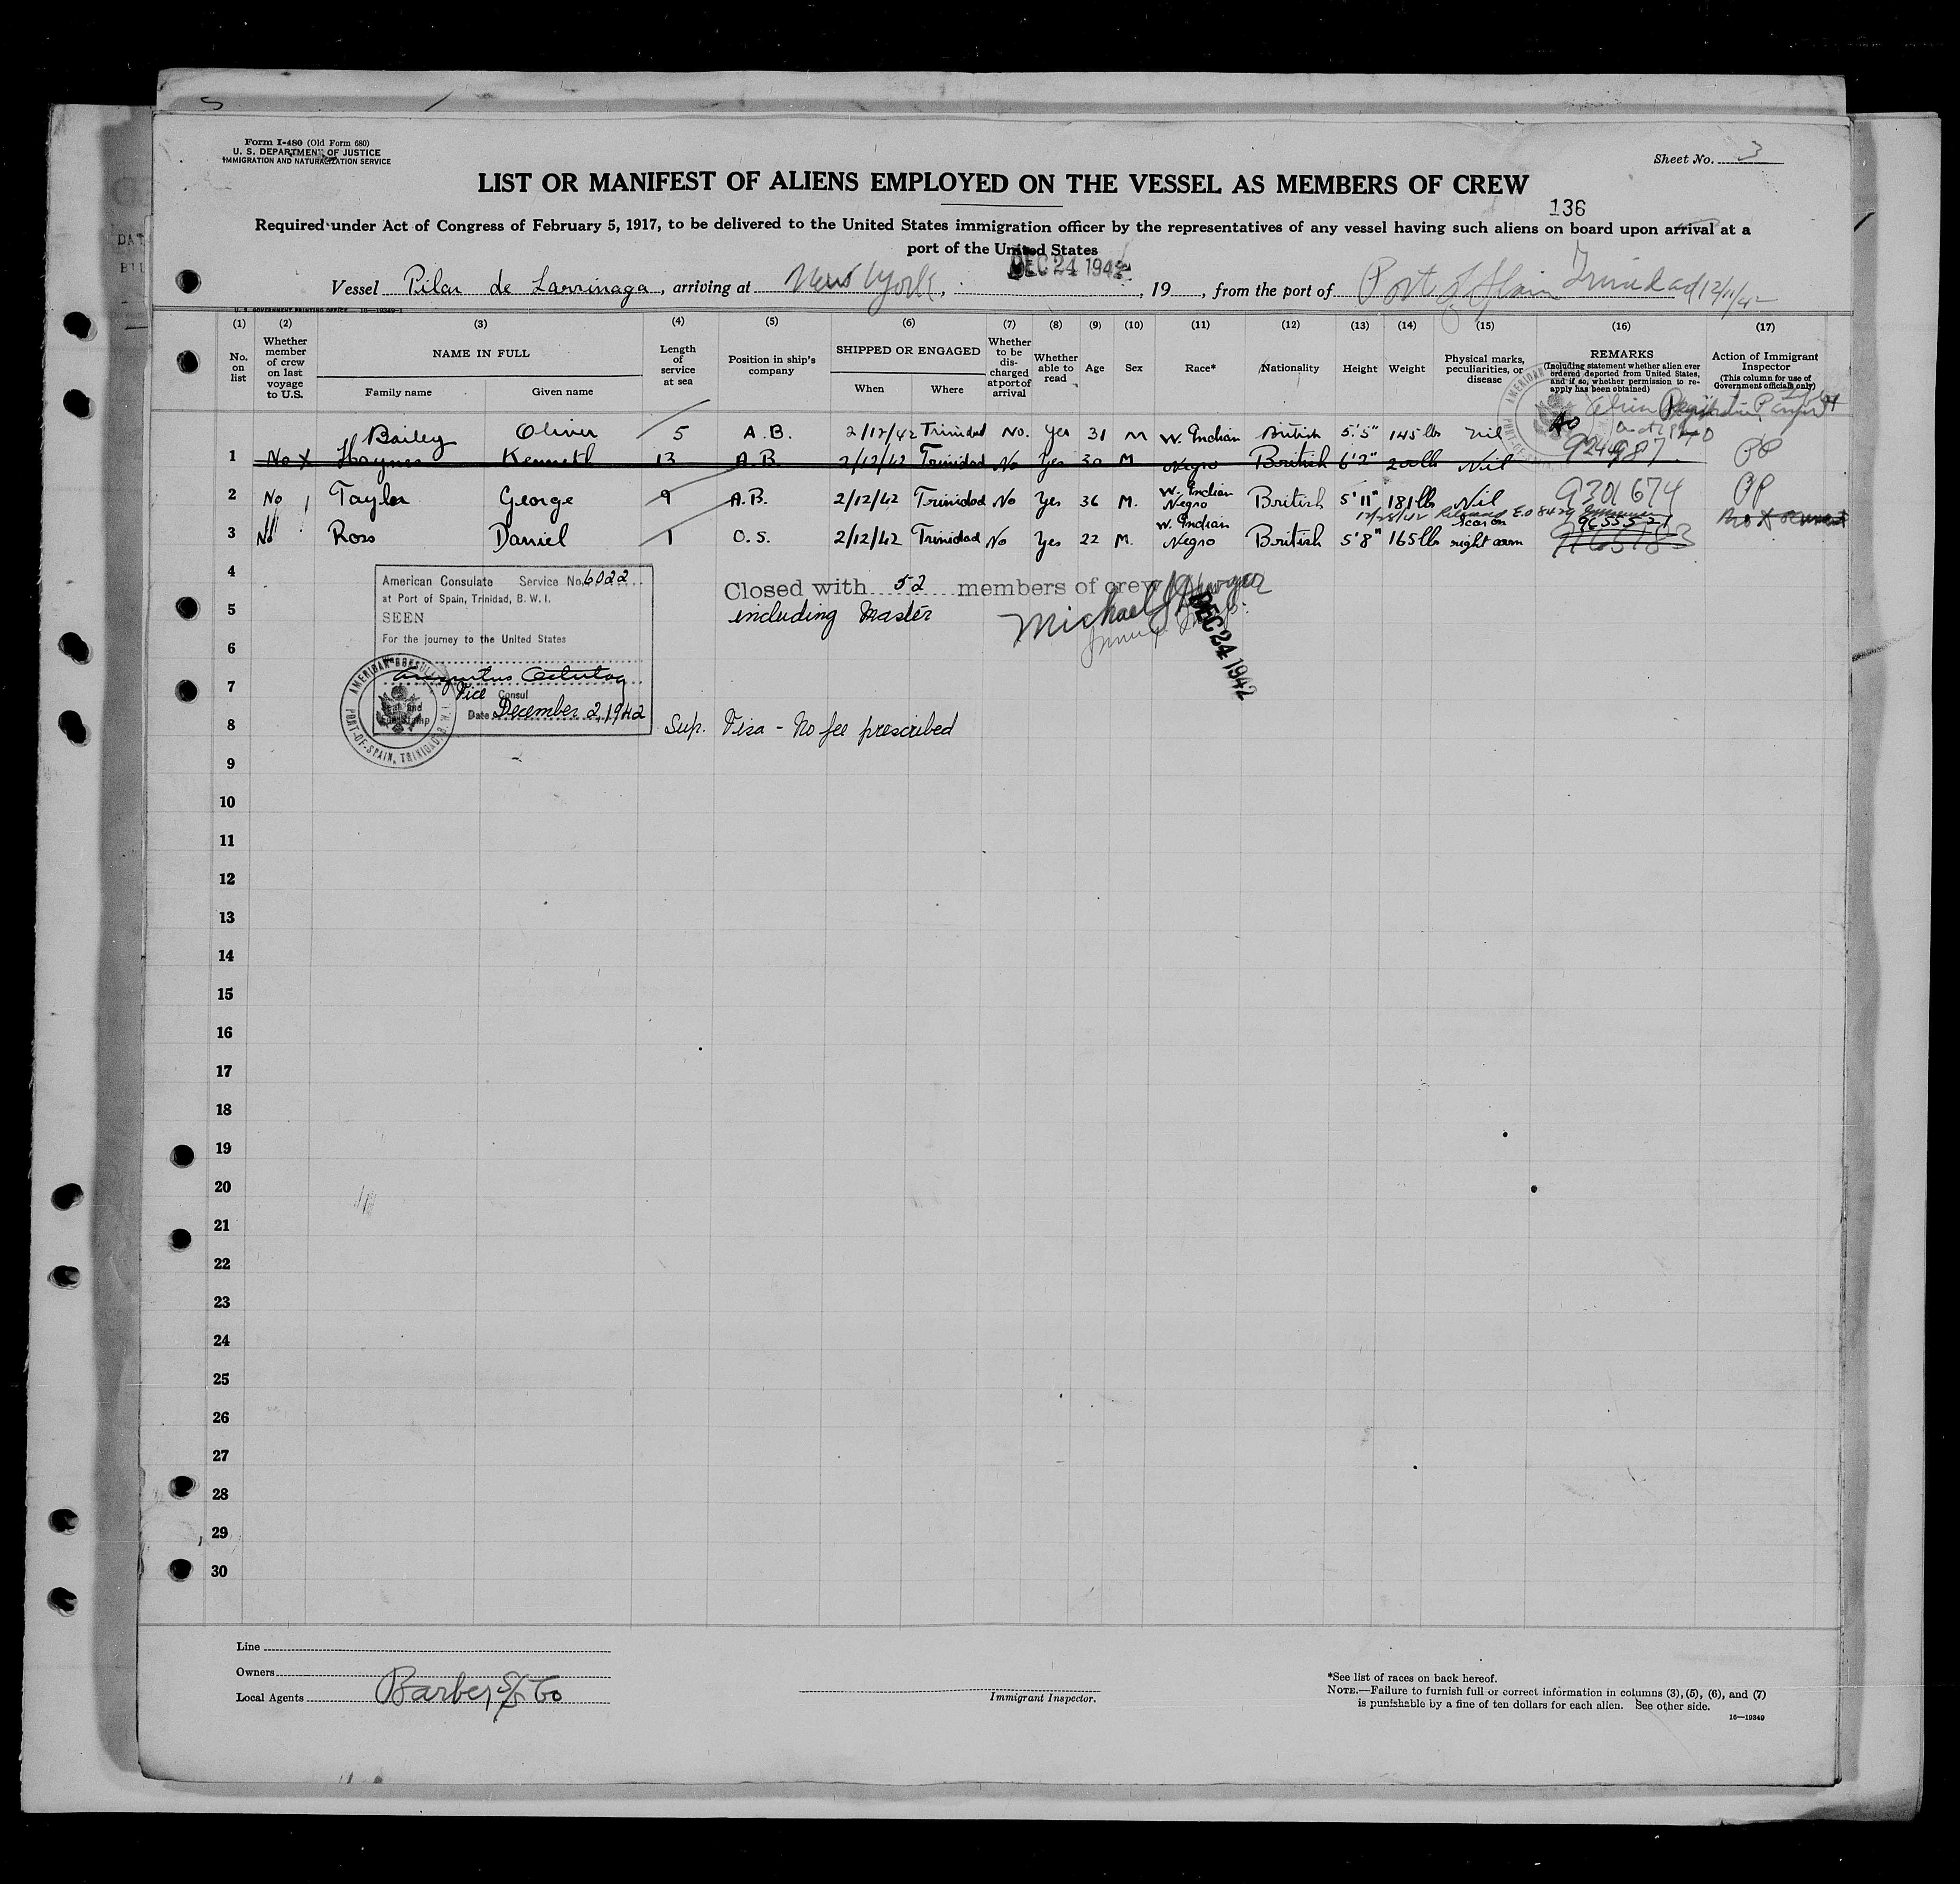 Form I-480 (Old Form 680)
U. S. DEPARTMENT OF JUSTICE
IMMIGRATION AND NATURALIZATION SERVICE
Sheet No. 3
LIST OR MANIFEST OF ALIENS EMPLOYED ON THE VESSEL AS MEMBERS OF CREW
136
Required under Act of Congress of February 5, 1917, to be delivered to the United States immigration officer by the representatives of any vessel having such aliens on board upon arrival at a
port of the United States
DEC 24 1942
Vessel Pilar de Larrinaga, arriving at New York, , 19 , from the port of Port of Spain Trinidad 12/11/42
U. S. GOVERNMENT PRINTING OFFICE 16—19349-1
(1) (2) (3) (4) (5) (6) (7) (8) (9) (10) (11) (12) (13) (14) (15) (16) (17)
No. on list
Whether member of crew on last voyage to U.S.
NAME IN FULL
Family name Given name
Length of service at sea
Position in ship's company
SHIPPED OR ENGAGED
When Where
Whether to be discharged at port of arrival
Whether able to read
Age
Sex
Race*
Nationality
Height
Weight
Physical marks, peculiarities, or disease
REMARKS
(Including statement whether alien ever ordered deported from United States, and if so, whether permission to reapply has been obtained)
Action of Immigrant Inspector
(This column for use of Government officials only)
Bailey Oliver 5 A.B. 2/12/42 Trinidad No. Yes 31 M W. Indian British 5'.5" 145 lbs Nil
1 No X Haynes Kenneth 13 A.B. 2/12/42 Trinidad No Yes 30 M Negro British 6'2" 200 lb Nil PP
2 No Taylor George 9 A.B. 2/12/42 Trinidad No Yes 36 M. W. Indian Negro British 5'11" 181 lbs Nil 9301674 PP
3 No Ross Daniel 1 O.S. 2/12/42 Trinidad No Yes 22 M. W. Indian Negro British 5'8" 165 lbs Scar on right arm
4
American Consulate Service No. 6022
at Port of Spain, Trinidad, B. W. I.
SEEN
For the journey to the United States
Vice Consul
Date December 2, 1942
AMERICAN CONSULATE
PORT-OF-SPAIN, TRINIDAD, B.W.I.
Closed with 52 members of crew
including Master
Michael
DEC 24 1942
5
6
7
8
Sup. Visa - No fee prescribed
9
10
11
12
13
14
15
16
17
18
19
20
21
22
23
24
25
26
27
28
29
30
Line
Owners
Local Agents Barber S/S Co
Immigrant Inspector.
*See list of races on back hereof.
NOTE.—Failure to furnish full or correct information in columns (3), (5), (6), and (7)
is punishable by a fine of ten dollars for each alien. See other side.
16—19349